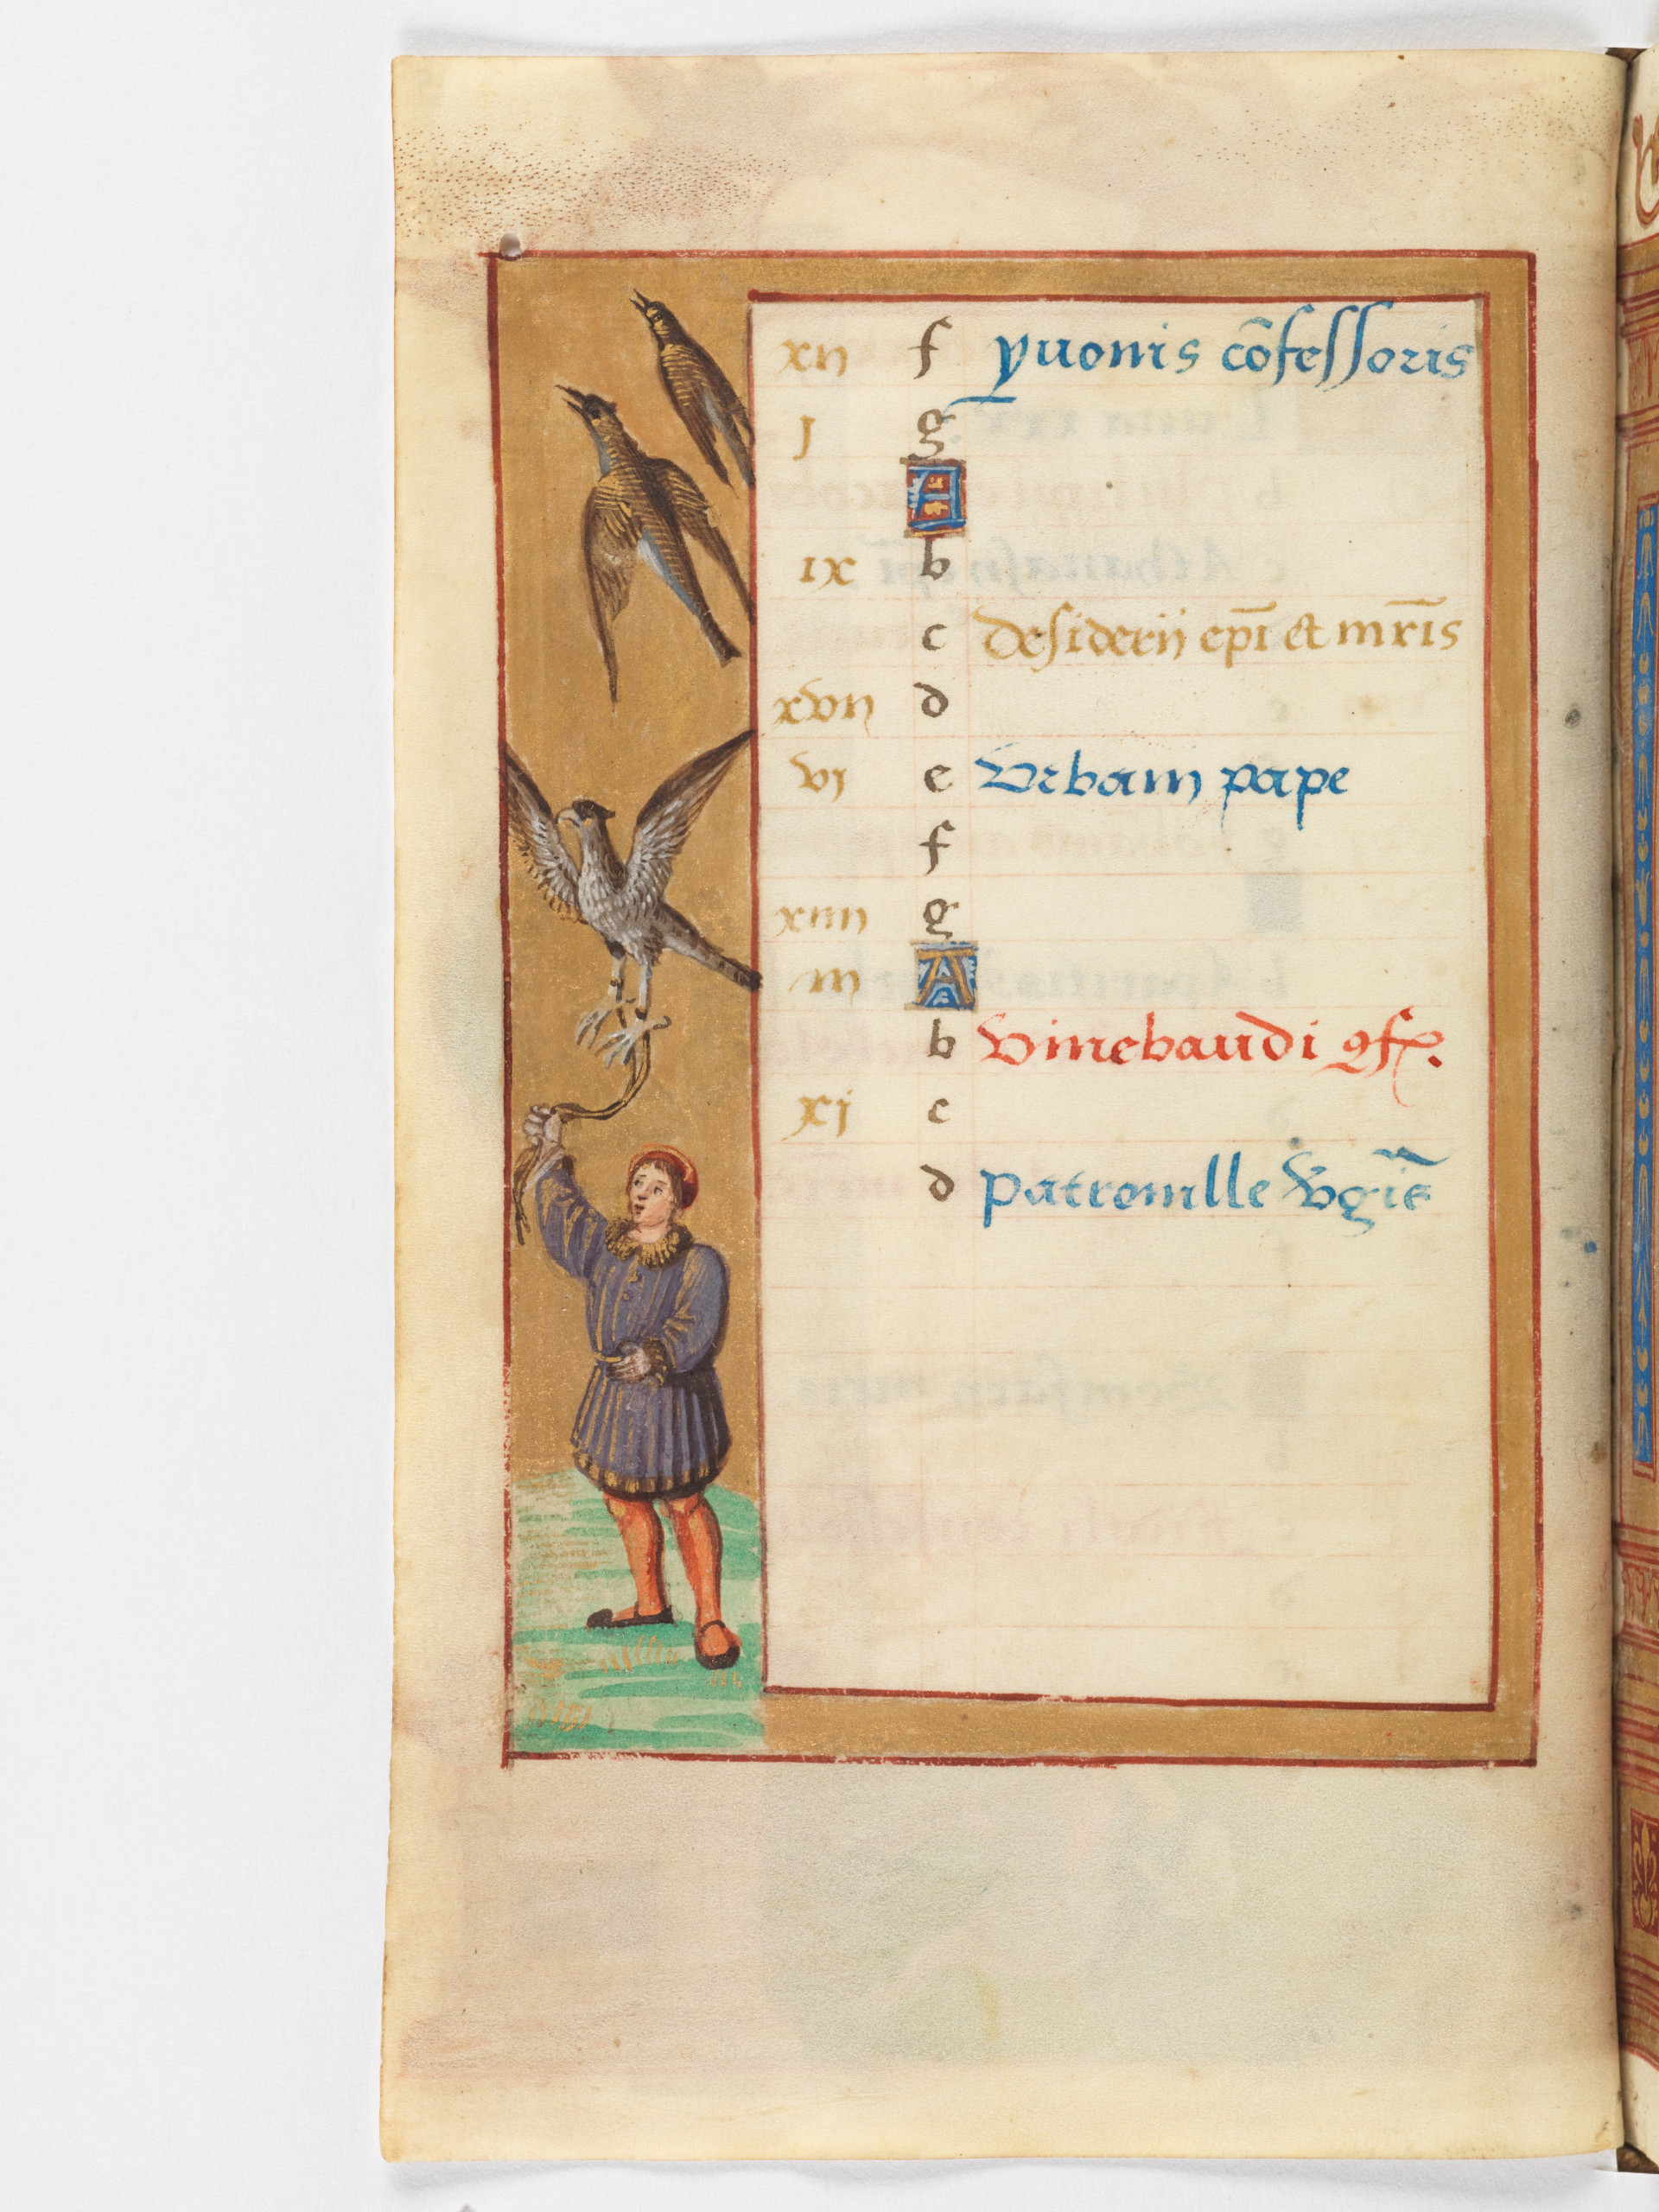 xii f yuonis cōfessoris
j g
A
ix b
c desiderij epī et mr̄is
xvii d
vj e Vrbani pape
f
xiiii g
iii A
b Vinebaudi ꝯf.
xj c
d patronille Vgīs